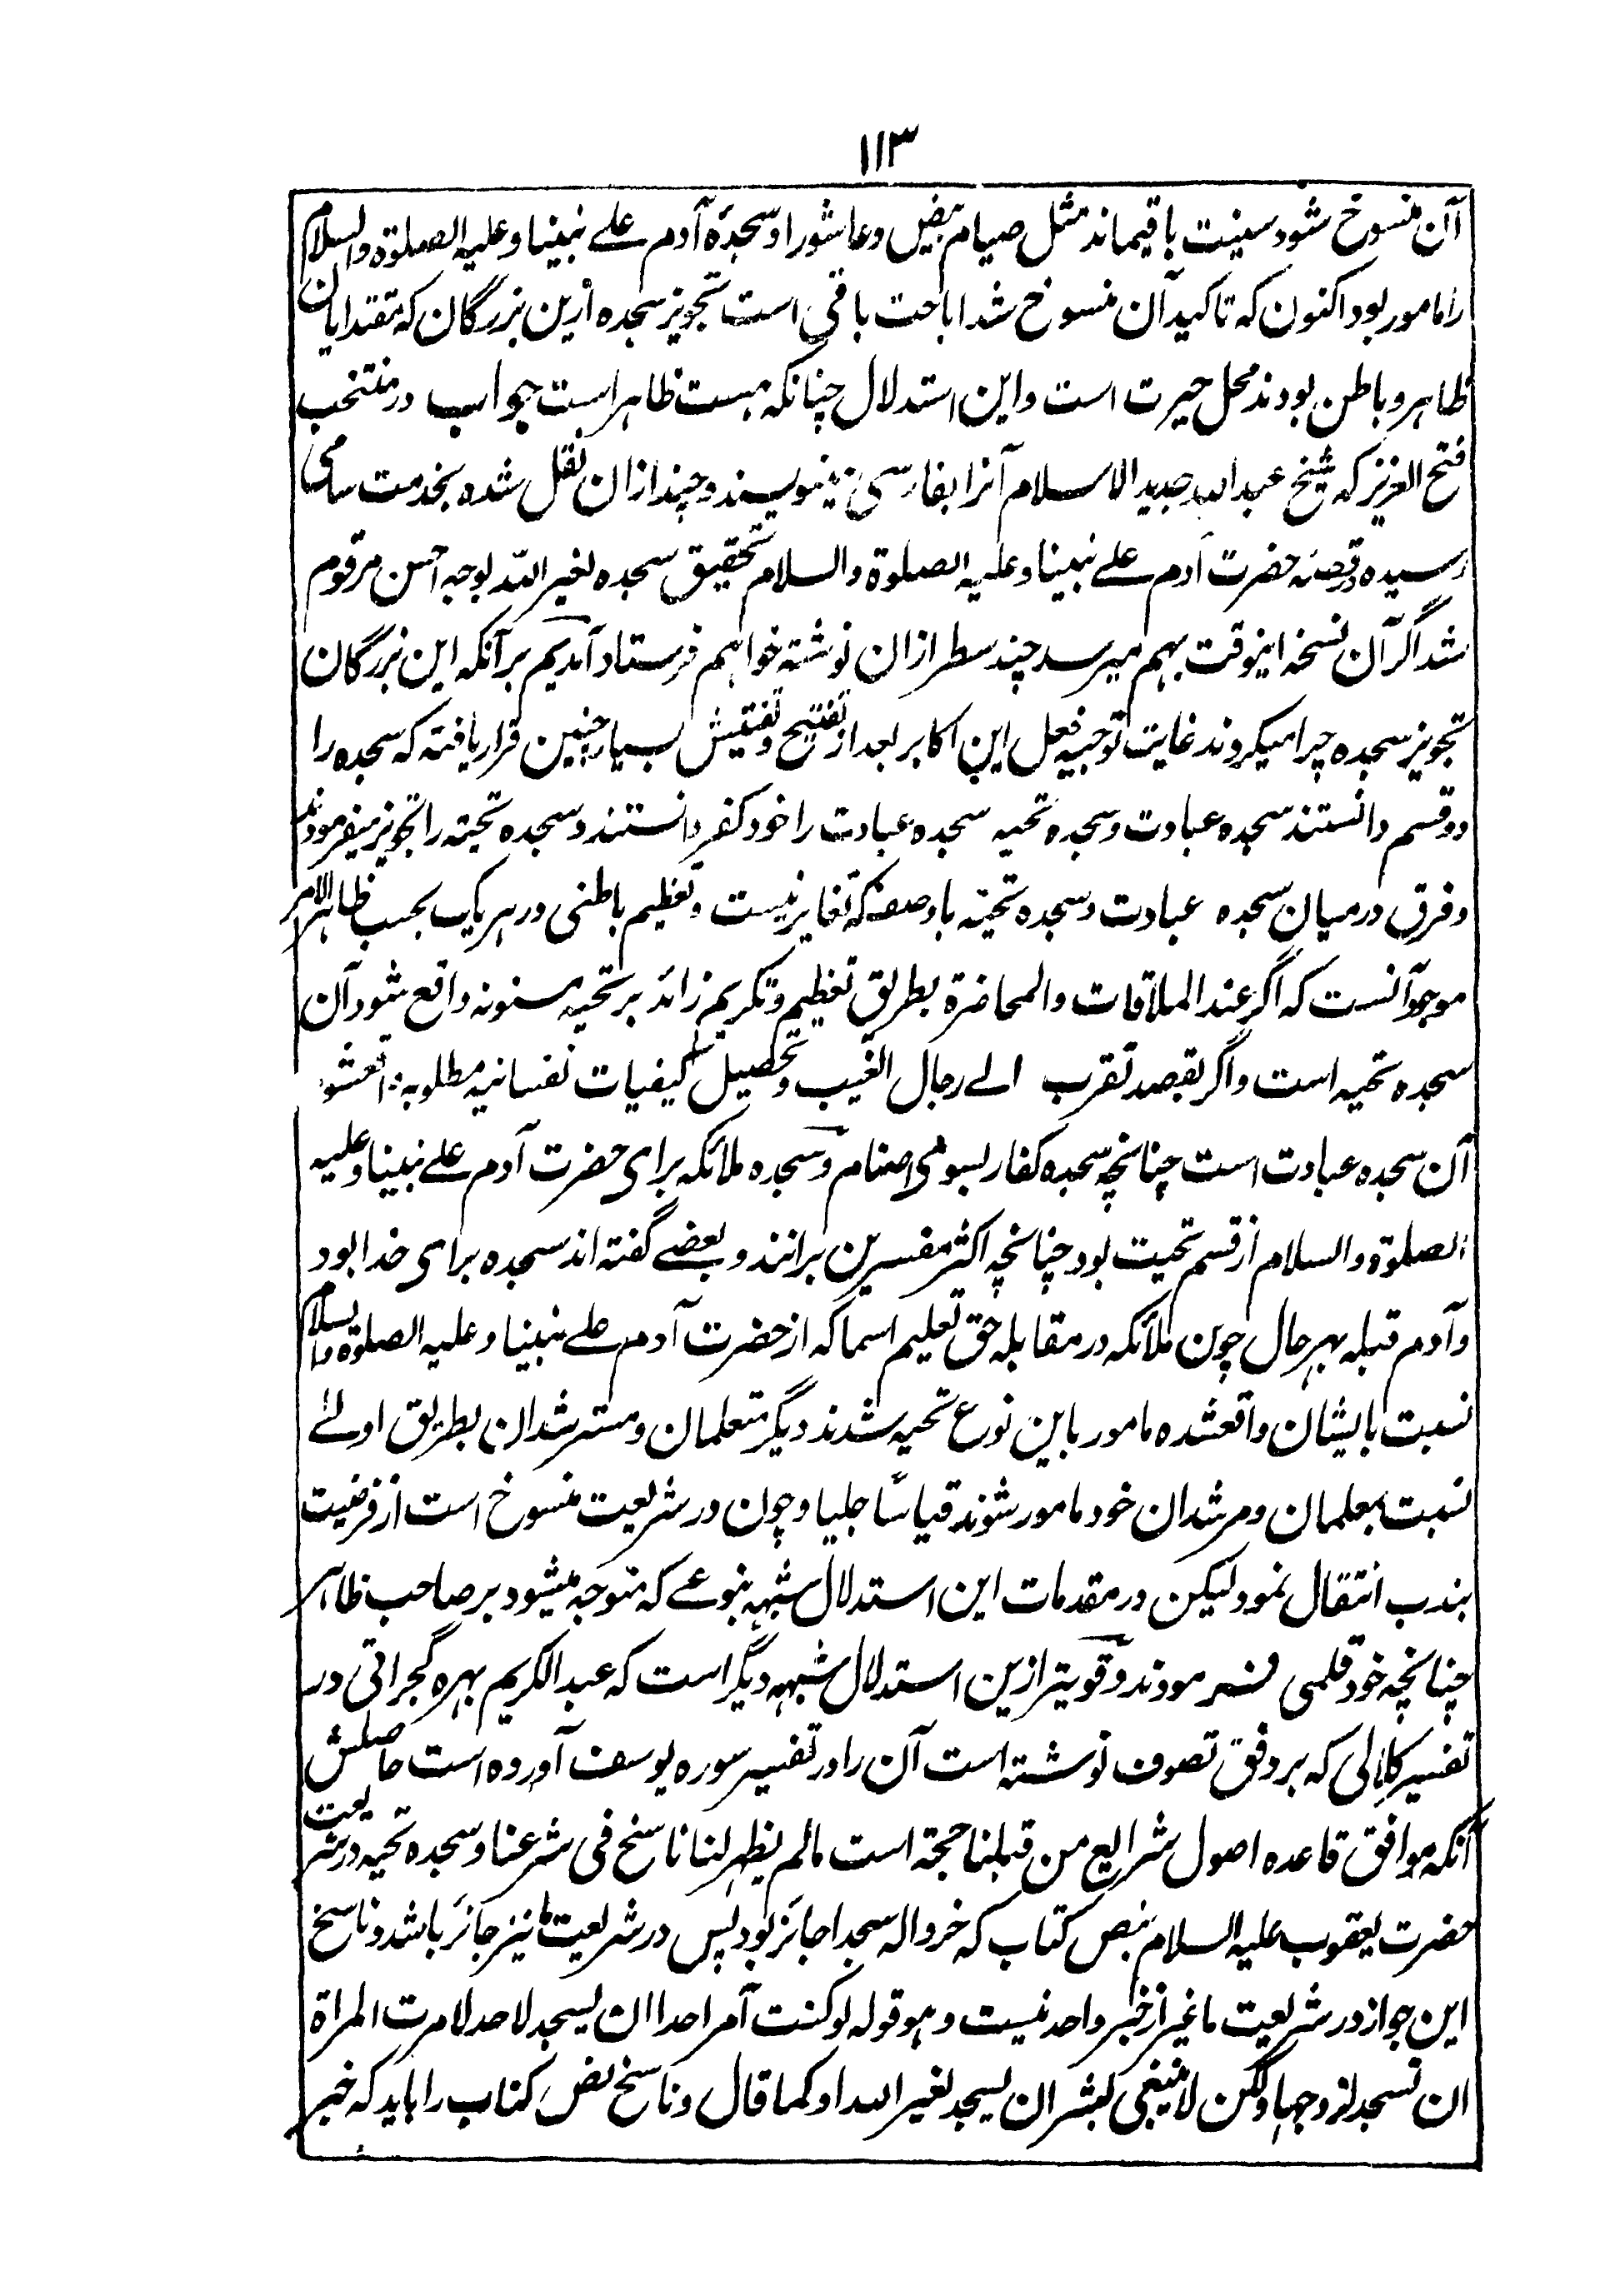 ۱۱۳
آن منسوخ شود سنیت باقیماند مثل صیام بیض و عاشورا و سجدۂ آدم علے نبینا و علیہ الصلوۃ والسلام
را مامور بود اکنون کہ تاکید آن منسوخ شد اباحت باقی است تجویز سجدہ ازین بزرگان کہ مقتدایان
ظاہر و باطن بودند محل حیرت است و این استدلال چنانکہ ہست ظاہر است جواب در منتخب
فتح العزیز کہ شیخ عبداللہ جدید الاسلام آنرا بفارسی مینویسند و چند ازان نقل شدہ بخدمت سامی
رسیدہ در قصۂ حضرت آدم علے نبینا و علیہ الصلوۃ والسلام تحقیق سجدہ لغیر اللہ بوجہ احسن مرقوم
شد اگر آن نسخہ اینوقت بہم میرسد چند سطر ازان نوشتہ خواہم فرستاد آمدیم برآنکہ این بزرگان
تجویز سجدہ چرا میکردند غایت توجیہ فعل این اکابر بعد از تفتیح و تفتیش بسیار چنین قرار یافتہ کہ سجدہ را
دو قسم دانستند سجدہ عبادت و سجدہ تحیہ سجدہ عبادت را خود کفر دانستند و سجدہ تحیتہ را تجویز میفرمودند
و فرق درمیان سجدہ عبادت و سجدہ تحیتہ باوصفیکہ تغایر نیست و تعظیم باطنی در ہر یک بحسب ظاہر الامر
موجود آنست کہ اگر عند الملاقات والمحاضرۃ بطریق تعظیم و تکریم زائد بر تحیہ مسنونہ واقع شود آن
سجدہ تحیہ است و اگر بقصد تقرب الے رجال الغیب و تحصیل کیفیات نفسانیہ مطلوبہ واقعشود
آن سجدہ عبادت است چنانچہ سجدہ کفار بسوی اصنام و سجدہ ملائکہ برای حضرت آدم علے نبینا و علیہ
الصلوۃ والسلام از قسم تحیت بود چنانچہ اکثر مفسرین برانند و بعضے گفتہ اند سجدہ برای خدا بود
و آدم قبلہ بہرحال چون ملائکہ در مقابلہ حق تعلیم اسما کہ از حضرت آدم علے نبینا و علیہ الصلوۃ والسلام
نسبت بایشان واقعشدہ مامور باین نوع تحیہ شدند دیگر متعلمان و مسترشدان بطریق اولےٰ
نسبت بمعلمان و مرشدان خود مامور شوند قیاسًا جلیا و چون در شریعت منسوخ است از فرضیت
بندب انتقال نمود لیکن در مقدمات این استدلال شبہہ بنوعے کہ متوجہ میشود بر صاحب ظاہر
چنانچہ خود قلمی فرمودند و قویتر ازین استدلال شبہہ دیگر است کہ عبدالکریم بہرہ گجراتی در
تفسیر کمالی کہ بر وفق تصوف نوشتہ است آن را در تفسیر سورہ یوسف آوردہ است حاصلش
آنکہ موافق قاعدہ اصول شرایع من قبلنا حجۃ است مالم یظہر لنا ناسخ فی شرعنا و سجدہ تحیہ در شریعت
حضرت یعقوب علیہ السلام بنص کتاب کہ خروا لہ سجدا جائز بود پس در شریعت ما نیز جائز باشد و ناسخ
این جواز در شریعت ما غیر از خبر واحد نیست و ہو قولہ لو کنت آمر احدا ان یسجد لاحد لامرت المراۃ
ان تسجد لزوجہا ولکن لا ینبغی لبشر ان یسجد لغیر اللہ او کما قال و ناسخ نص کتاب را باید کہ خبر